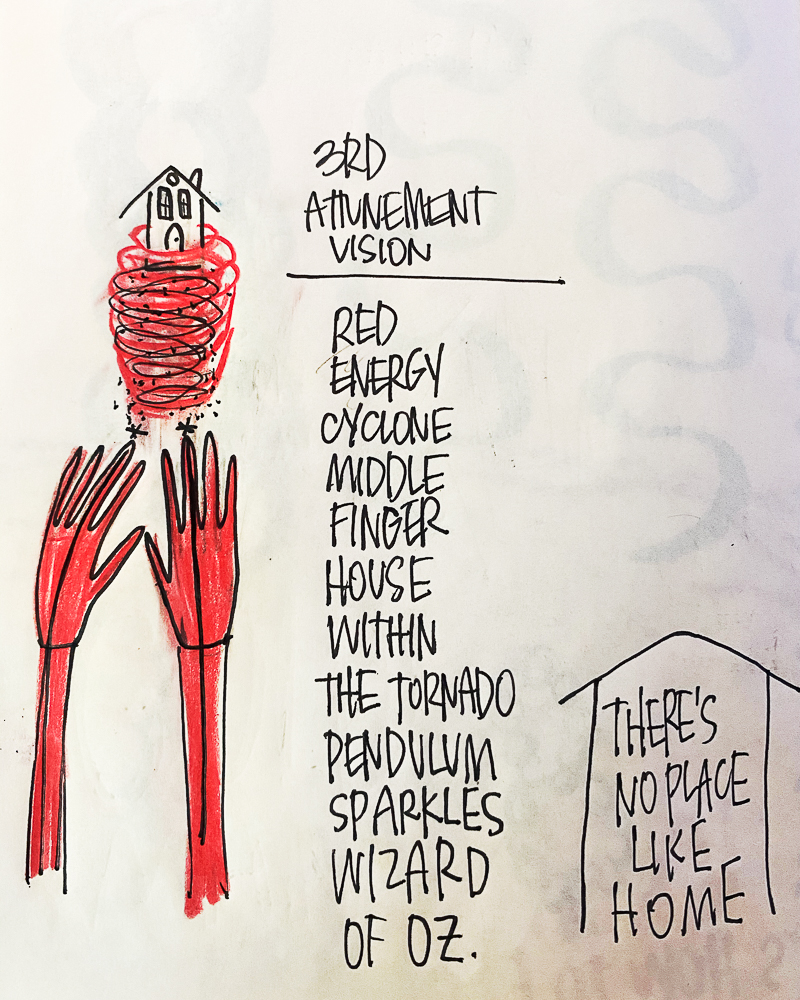 3RD
ATTUNEMENT
VISION
RED
ENERGY
CYCLONE
MIDDLE
FINGER
HOUSE
WITHIN
THE TORNADO
PENDULUM
SPARKLES
WIZARD
OF OZ.
THERE'S
NO PLACE
LIKE
HOME